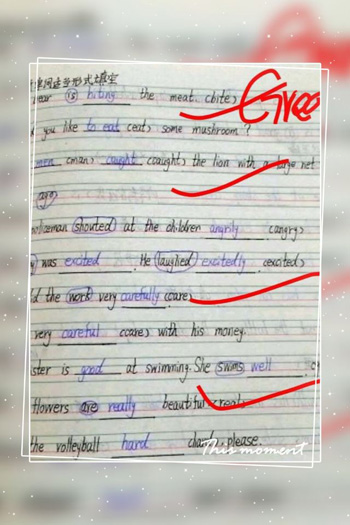 用单词适当形式填空
ear is hiting the meat. (bite)
Great
you like to eat (eat) some mushroom?
men (man) caught (caught) the lion with a large net
ago
policeman shouted at the children angrily (angry)
was excited. He laughed excitedly (excited)
d the work very carefully (care)
very careful (care) with his money.
ster is good at swimming. She swims well
flowers are really beautiful (real)
the volleyball hard please.
This moment